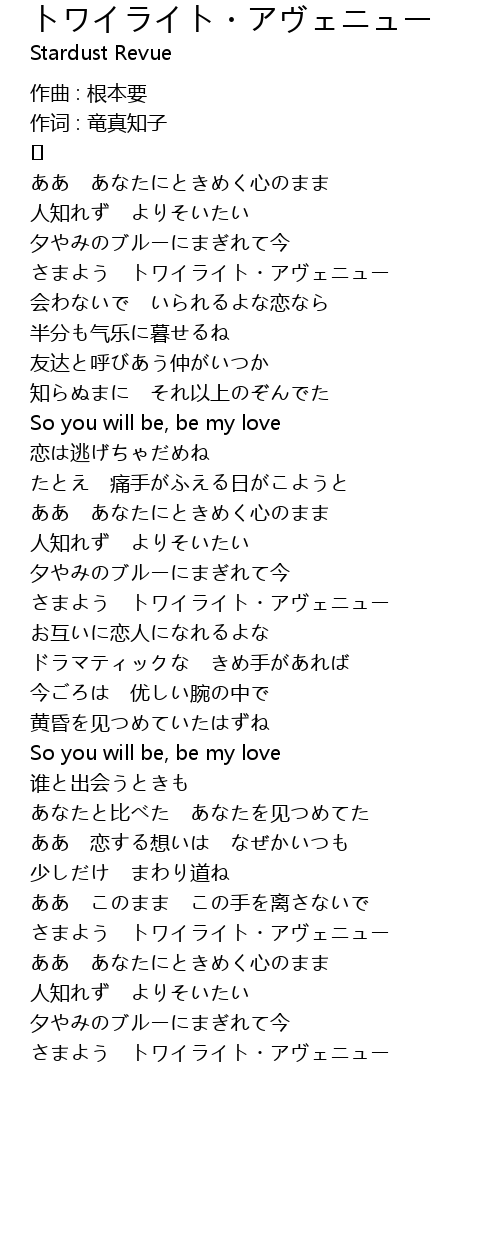 トワイライト・アヴェニュー
Stardust Revue
作曲 : 根本要
作词 : 竜真知子
[]
ああ　あなたにときめく心のまま
人知れず　よりそいたい
夕やみのブルーにまぎれて今
さまよう　トワイライト・アヴェニュー
会わないで　いられるよな恋なら
半分も气乐に暮せるね
友达と呼びあう仲がいつか
知らぬまに　それ以上のぞんでた
So you will be, be my love
恋は逃げちゃだめね
たとえ　痛手がふえる日がこようと
ああ　あなたにときめく心のまま
人知れず　よりそいたい
夕やみのブルーにまぎれて今
さまよう　トワイライト・アヴェニュー
お互いに恋人になれるよな
ドラマティックな　きめ手があれば
今ごろは　优しい腕の中で
黄昏を见つめていたはずね
So you will be, be my love
谁と出会うときも
あなたと比べた　あなたを见つめてた
ああ　恋する想いは　なぜかいつも
少しだけ　まわり道ね
ああ　このまま　この手を离さないで
さまよう　トワイライト・アヴェニュー
ああ　あなたにときめく心のまま
人知れず　よりそいたい
夕やみのブルーにまぎれて今
さまよう　トワイライト・アヴェニュー